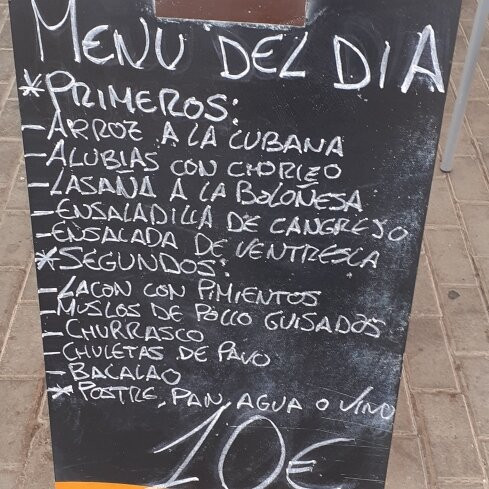 MENU DEL DIA
*PRIMEROS:
-ARROZ A LA CUBANA
-ALUBIAS CON CHORIZO
-LASAÑA A LA BOLOÑESA
-ENSALADILLA DE CANGREJO
-ENSALADA DE VENTRESCA
*SEGUNDOS:
-LACON CON PIMIENTOS
-MUSLOS DE POLLO GUISADOS
-CHURRASCO
-CHULETAS DE PAVO
-BACALAO
*POSTRE, PAN, AGUA O VINO
10€